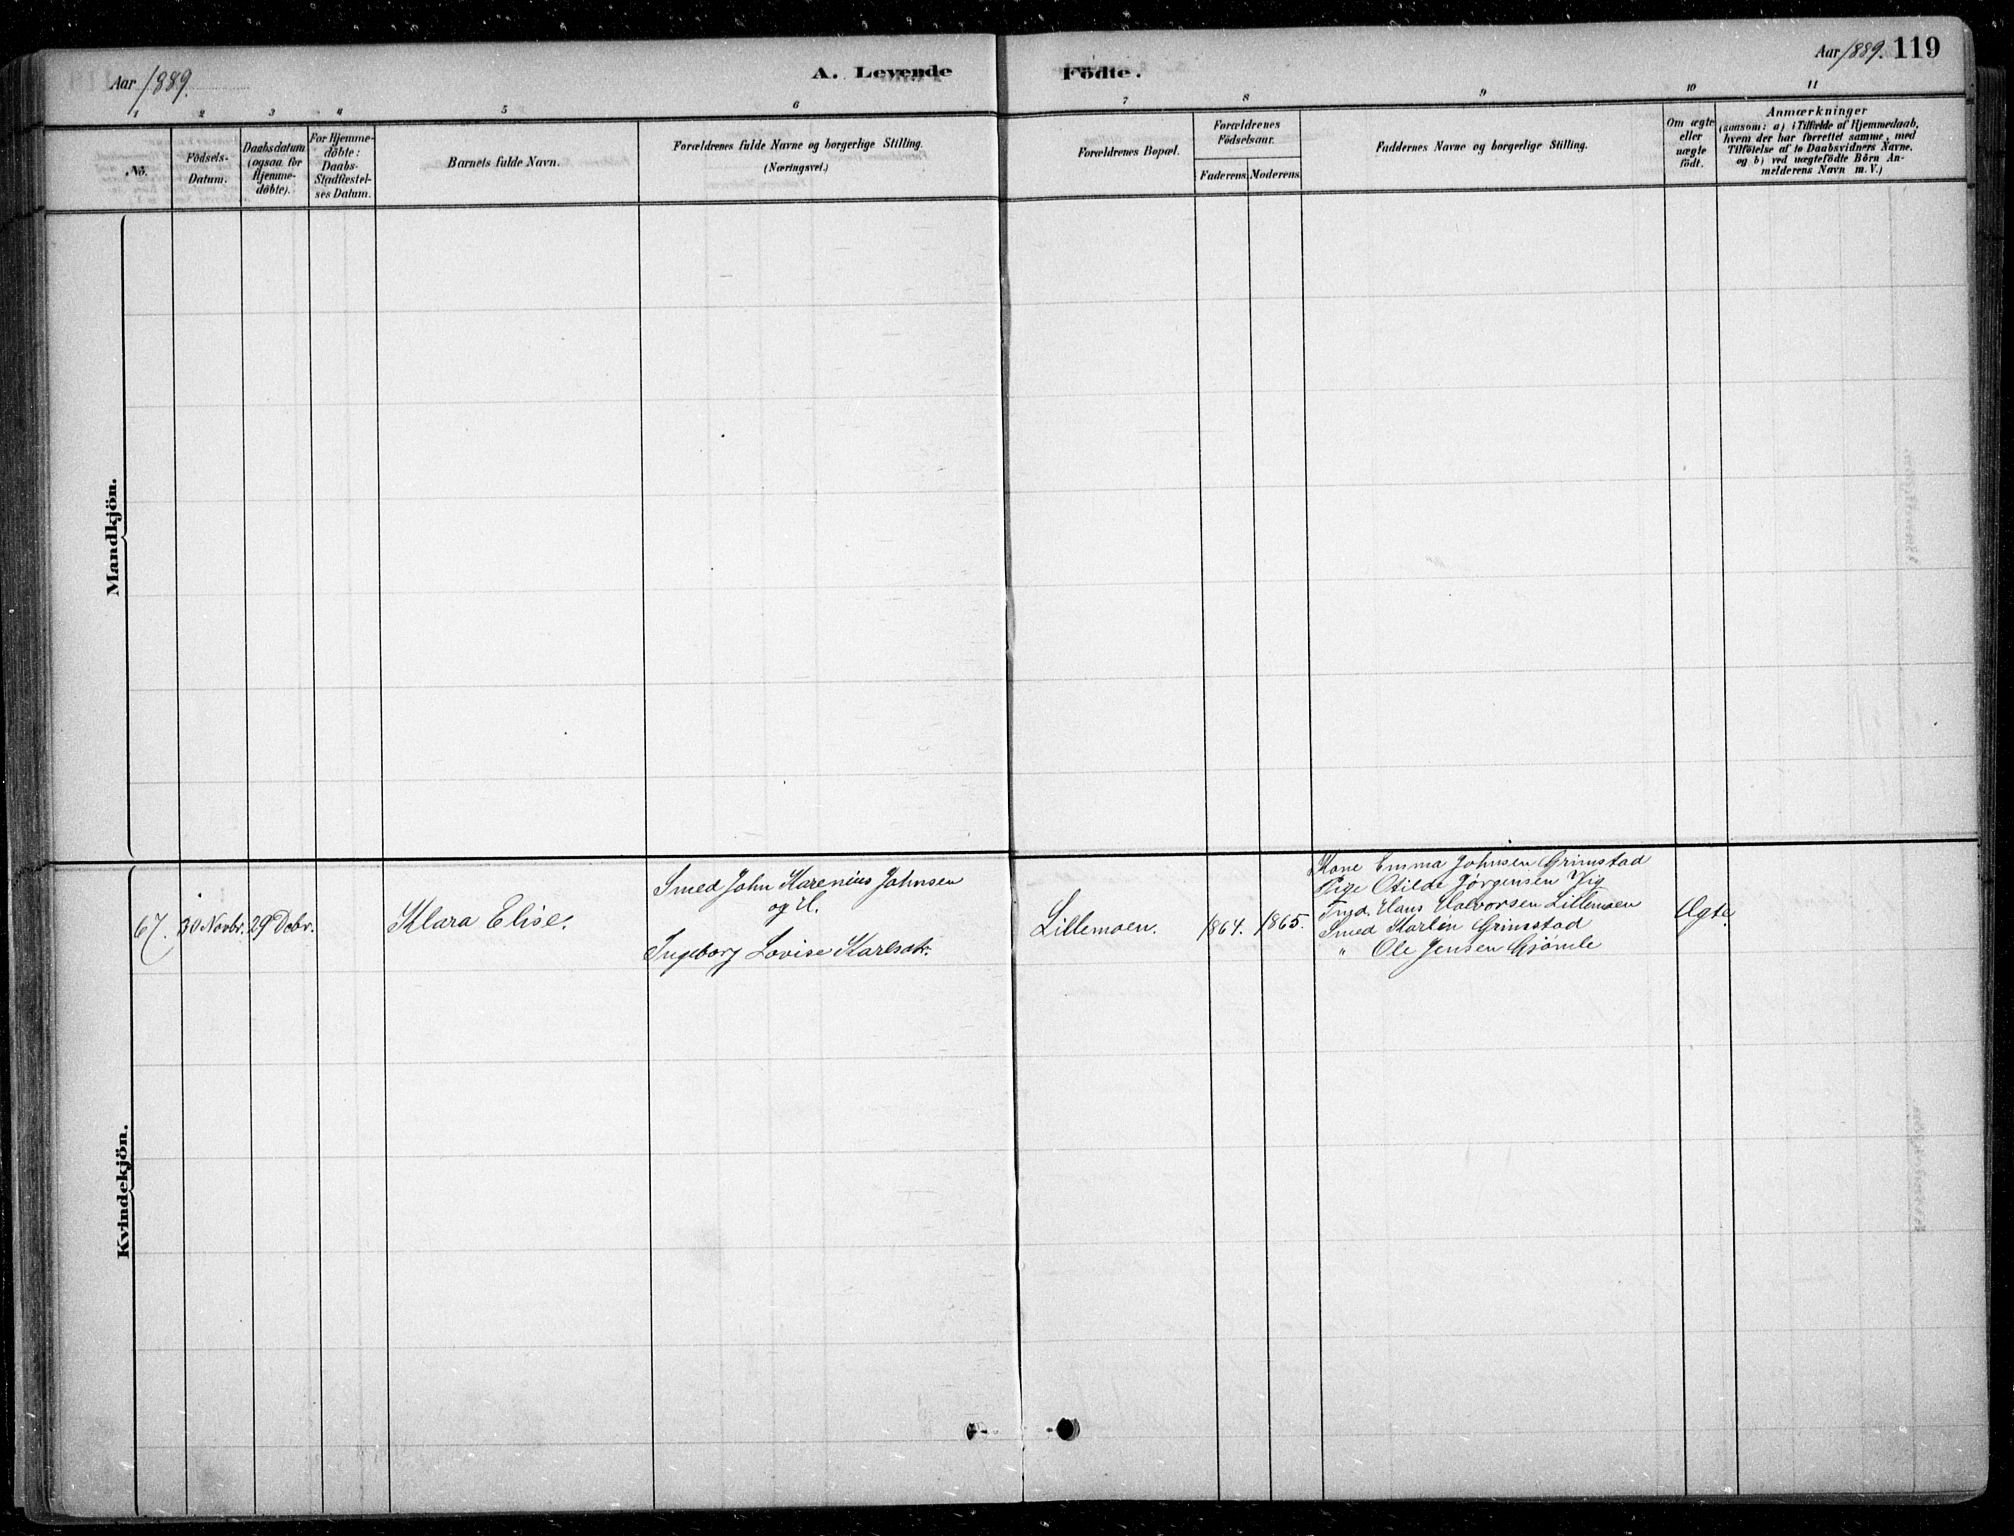 Aar 1889.
A. Levende Födte.
Aar 1889. 119
1 2 3 4 5 6 7 8 9 10 11
No.
Födsels-
Datum.
Daabsdatum
(ogsaa for
Hjemme-
döbte).
For Hjemme-
döbte:
Daabs-
Stadfæstel-
ses Datum.
Barnets fulde Navn.
Forældrenes fulde Navne og borgerlige Stilling.
(Næringsvei.)
Forældrenes Bopæl.
Forældrenes
Födselsaar.
Faderens. Moderens.
Faddernes Navne og borgerlige Stilling.
Om ægte
eller
uægte
födt.
Anmærkninger
(saasom: a) i Tilfælde af Hjemmedaab,
hvem der har forrettet samme, med
Tilföielse af to Daabsvidners Navne,
og b) ved uægtefödte Börn An-
melderens Navn m. V.)
Mandkjön.
Kvindekjön.
67. 30 Novbr. 29 Debr.
Klara Elise.
Smed John Karenius Johnsen
og H.
Ingeborg Lovise Karlsdtr.
Lillemoen. 1864. 1865.
Kone Emma Johnsen Grimstad
Pige Otilde Jørgensen Vig
Hans Halvorsen Lillemoen
Smed Martin Grimstad
" Ole Jensen Gjömle
Ægte.